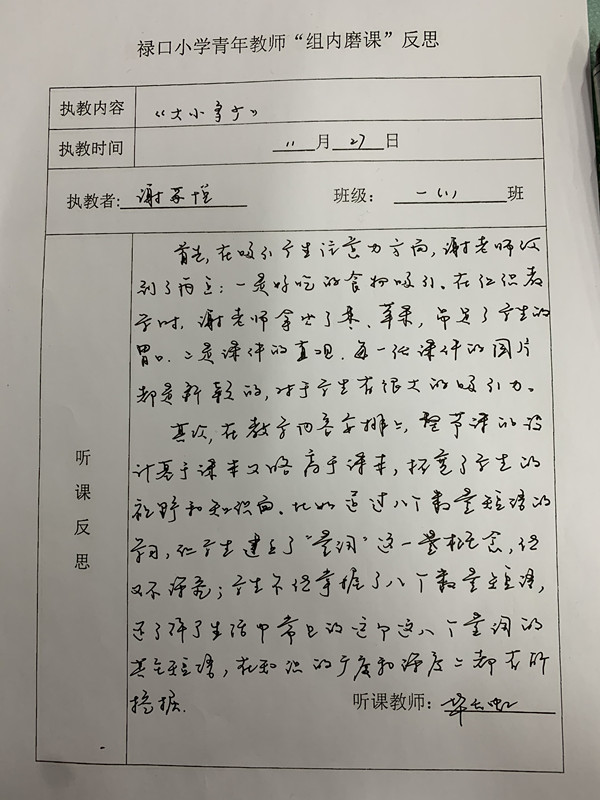 禄口小学青年教师“组内磨课”反思
执教内容 《大小多少》
执教时间 11月27日
执教者: 谢 班级: 一(1)班
听课反思
首先,在吸引学生注意力方面,谢老师做
到了两点:一是好吃的食物吸引。在组织教
学时,谢老师拿出了枣、苹果,吊足了学生的
胃口。二是课件的直观,每一张课件的图片
都是新颖的,对于学生有很大的吸引力。
其次,在教学内容安排上,整节课的设
计基于课本又略高于课本,拓宽了学生的
视野和知识面。比如通过八个数量短语的
学习,让学生建立了“量词”这一概念,但
又不深究;学生不但掌握了八个数量短语,
还了解了生活中常见的这八个量词的
其它短语,在知识的广度和深度上都有所
挖掘.
听课教师: